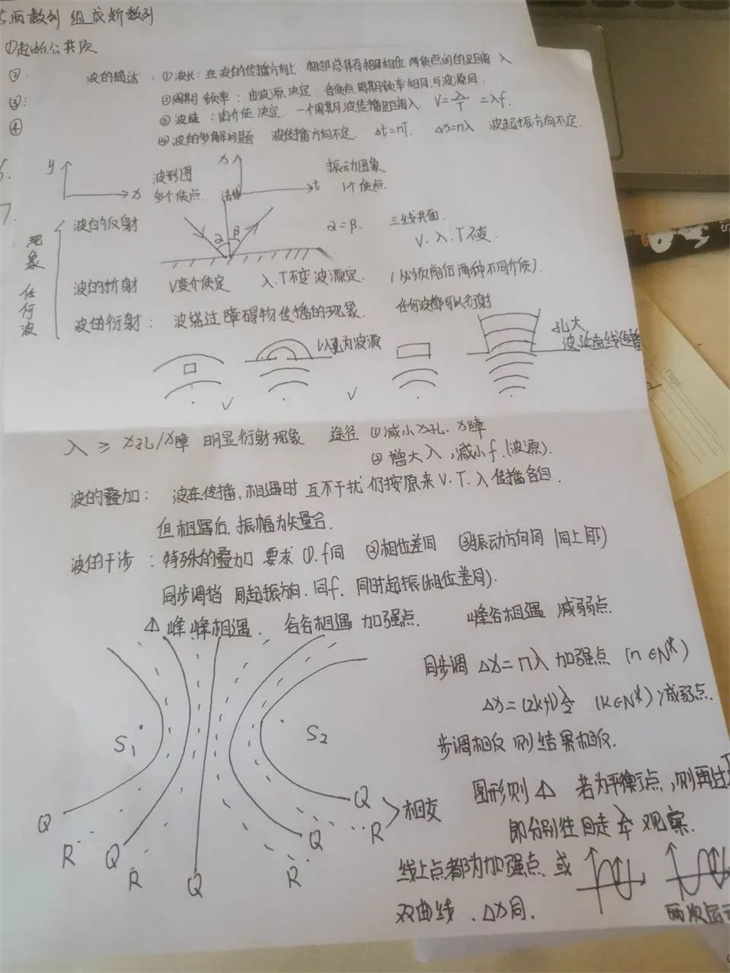 两数列 组成新数列
①起始公共项
②:
波的描述:①波长:在波的传播方向上,相邻总具有相同相位两质点间的距离 λ
③:
②周期 频率:由波源决定 各质点周期频率相同,与波源同.
④
③波速:由介质决定. 一个周期波传播距离λ V=λ/T=λf.
④波的多解问题 波传播方向不定. Δt=nT. Δx=nλ 波起振方向不定.
y
x
波形图
多个质点
x
法线
t
振动图象
1个质点.
7.
现象 任何波
波的反射
α β
α=β.
三线共面.
V.λ.T不变.
波的折射 V变介质定 λ.T不变波源定. (必须前后两种不同介质).
波的衍射: 波绕过障碍物传播的现象. 任何波都可以衍射
以孔为波源
孔大
波延直线传播
λ ≥ x孔/x障 明显衍射现象 途径 ①减小x孔.x障
② 增大λ,减小f.(波源).
波的叠加: 波在传播、相遇时 互不干扰 仍按原来V.T.λ传播各自.
但相遇后,振幅为矢量合.
波的干涉:特殊的叠加 要求 ①.f同 ②相位差同 ③振动方向同(同上同下)
同步调指 同起振方向.同f.同时起振(相位差同).
△ 峰峰相遇. 谷谷相遇 加强点. 峰谷相遇 减弱点.
同步调 Δx=nλ 加强点 (n∈N*)
Δx=(2k+1)λ/2 (k∈N*);减弱点.
S1
S2
步调相反 则结果相反.
Q
R
Q
R
Q
R
Q
R
Q
相交
图形则 △ 若为平衡点,则再过
即分别往回走 观察.
线上点都为加强点.或
双曲线.Δx同.
两次